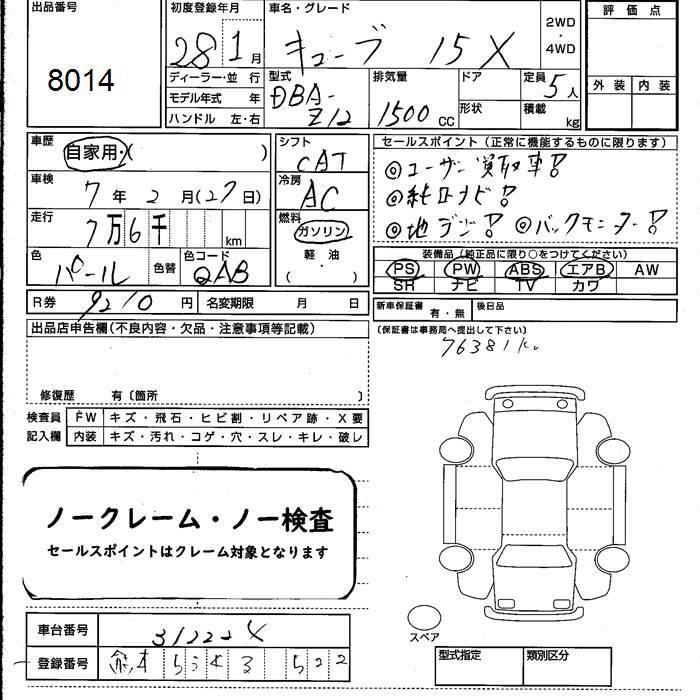 出品番号
8014
初度登録年月
28 1月
車名・グレード
キューブ 15X
2WD
・
4WD
評価点
外装 内装
ディーラー・並 行
モデル年式 年
ハンドル 左・右
型式
DBA-
Z12
排気量
1500 CC
ドア
形状
定員
5人
積載
kg
車歴
自家用・( )
車検
7年 2月(27日)
走行
7万6千 km
色
パール
色替
色コード
QAB
シフト
CAT
冷房
AC
燃料
ガソリン
軽油
( )
セールスポイント (正常に機能するものに限ります)
◎ユーザー買取車!!
◎純正ナビ!!
◎地デジ!! ◎バックモニター!!
装備品(純正品に限り○をつけてください)
PS PW ABS エアB AW
SR ナビ TV カワ
R券 9210円 名変期限 月 日
新車保証書 有・無 後日品
(保証書は事務局へ提出して下さい)
76381K
出品店申告欄(不良内容・欠品・注意事項等記載)
修復歴 有〔箇所 〕
検査員 FW キズ・飛石・ヒビ割・リペア跡・X要
記入欄 内装 キズ・汚れ・コゲ・穴・スレ・キレ・破レ
ノークレーム・ノー検査
セールスポイントはクレーム対象となります
スペア
車台番号
登録番号 熊本
型式指定 類別区分